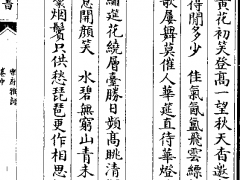 黃花初笑登高一望秋天杳邀
得閒多少　佳氣氤氳飛雲縹
歌屢舞莫催人華筵直待華燈
編選花繞層臺勝日頻高眺清
思開顏笑　水碧無窮山青未
裊烟鬟只供愁琵琶更作相思
書